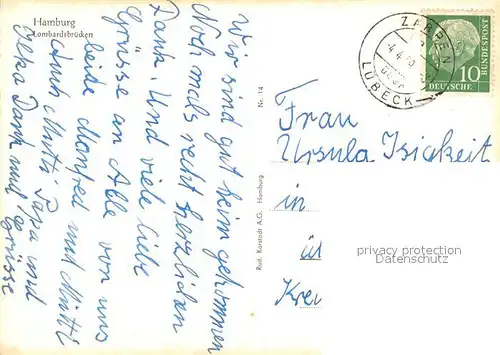 Hamburg
Lombardsbrücken
Wir sind gut heim gekommen
Noch mals recht herzlichen
Dank. Und viele liebe
Grüsse an Alle von uns
beide Manfred und Mutti
auch Mutti Papa und
Ilka Dank und Grüsse
Nr. 14
Rud. Karstadt A.G. Hamburg
ZARPEN
über
LÜBECK
10
DEUTSCHE
BUNDESPOST
Frau
Ursula Isigkeit
in
ül
Krei
privacy protection
Datenschutz